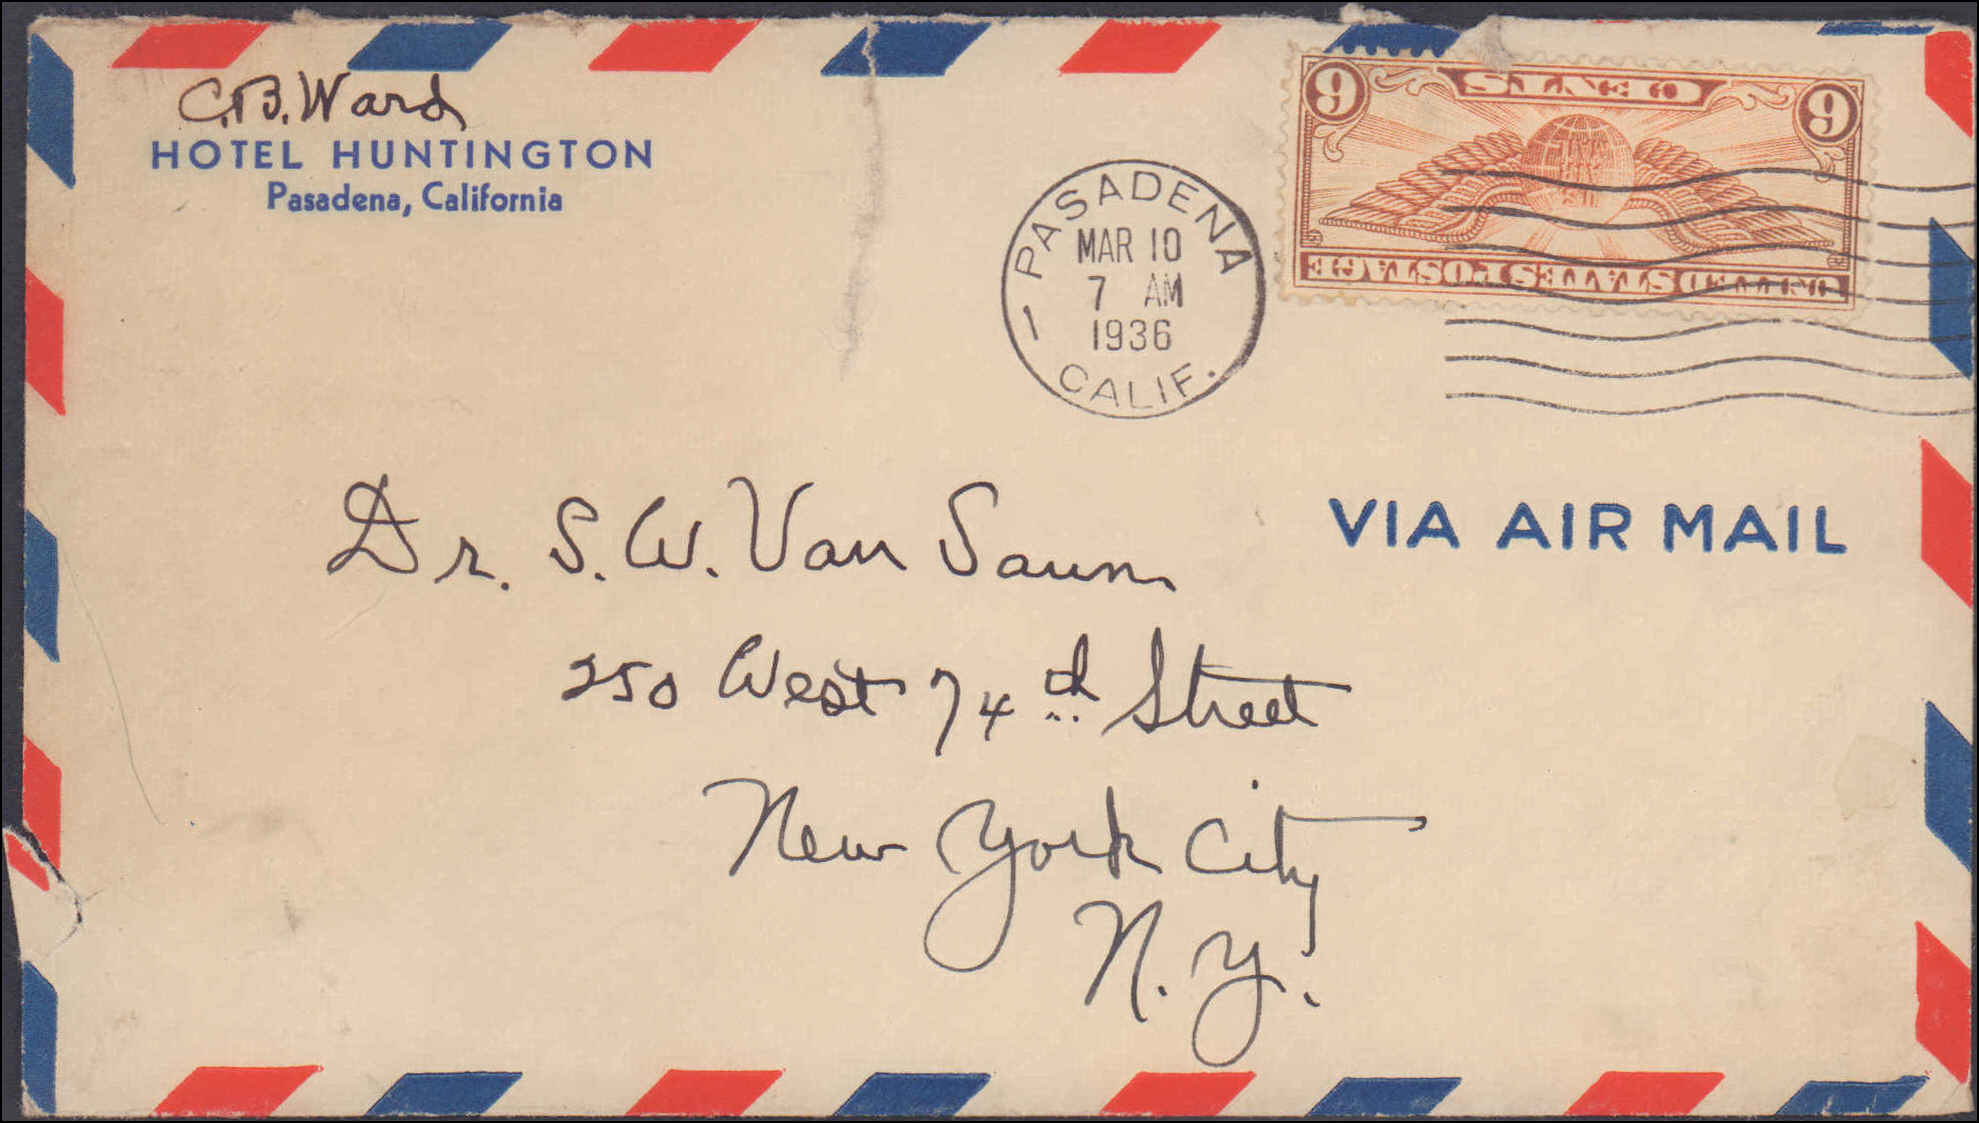 C.B. Ward
HOTEL HUNTINGTON
Pasadena, California
PASADENA
MAR 10
7 AM
1936
1
CALIF.
UNITED STATES POSTAGE
6 CENTS 6
VIA AIR MAIL
Dr. S. W. Van Saun
250 West 74th Street
New York City
N. Y.